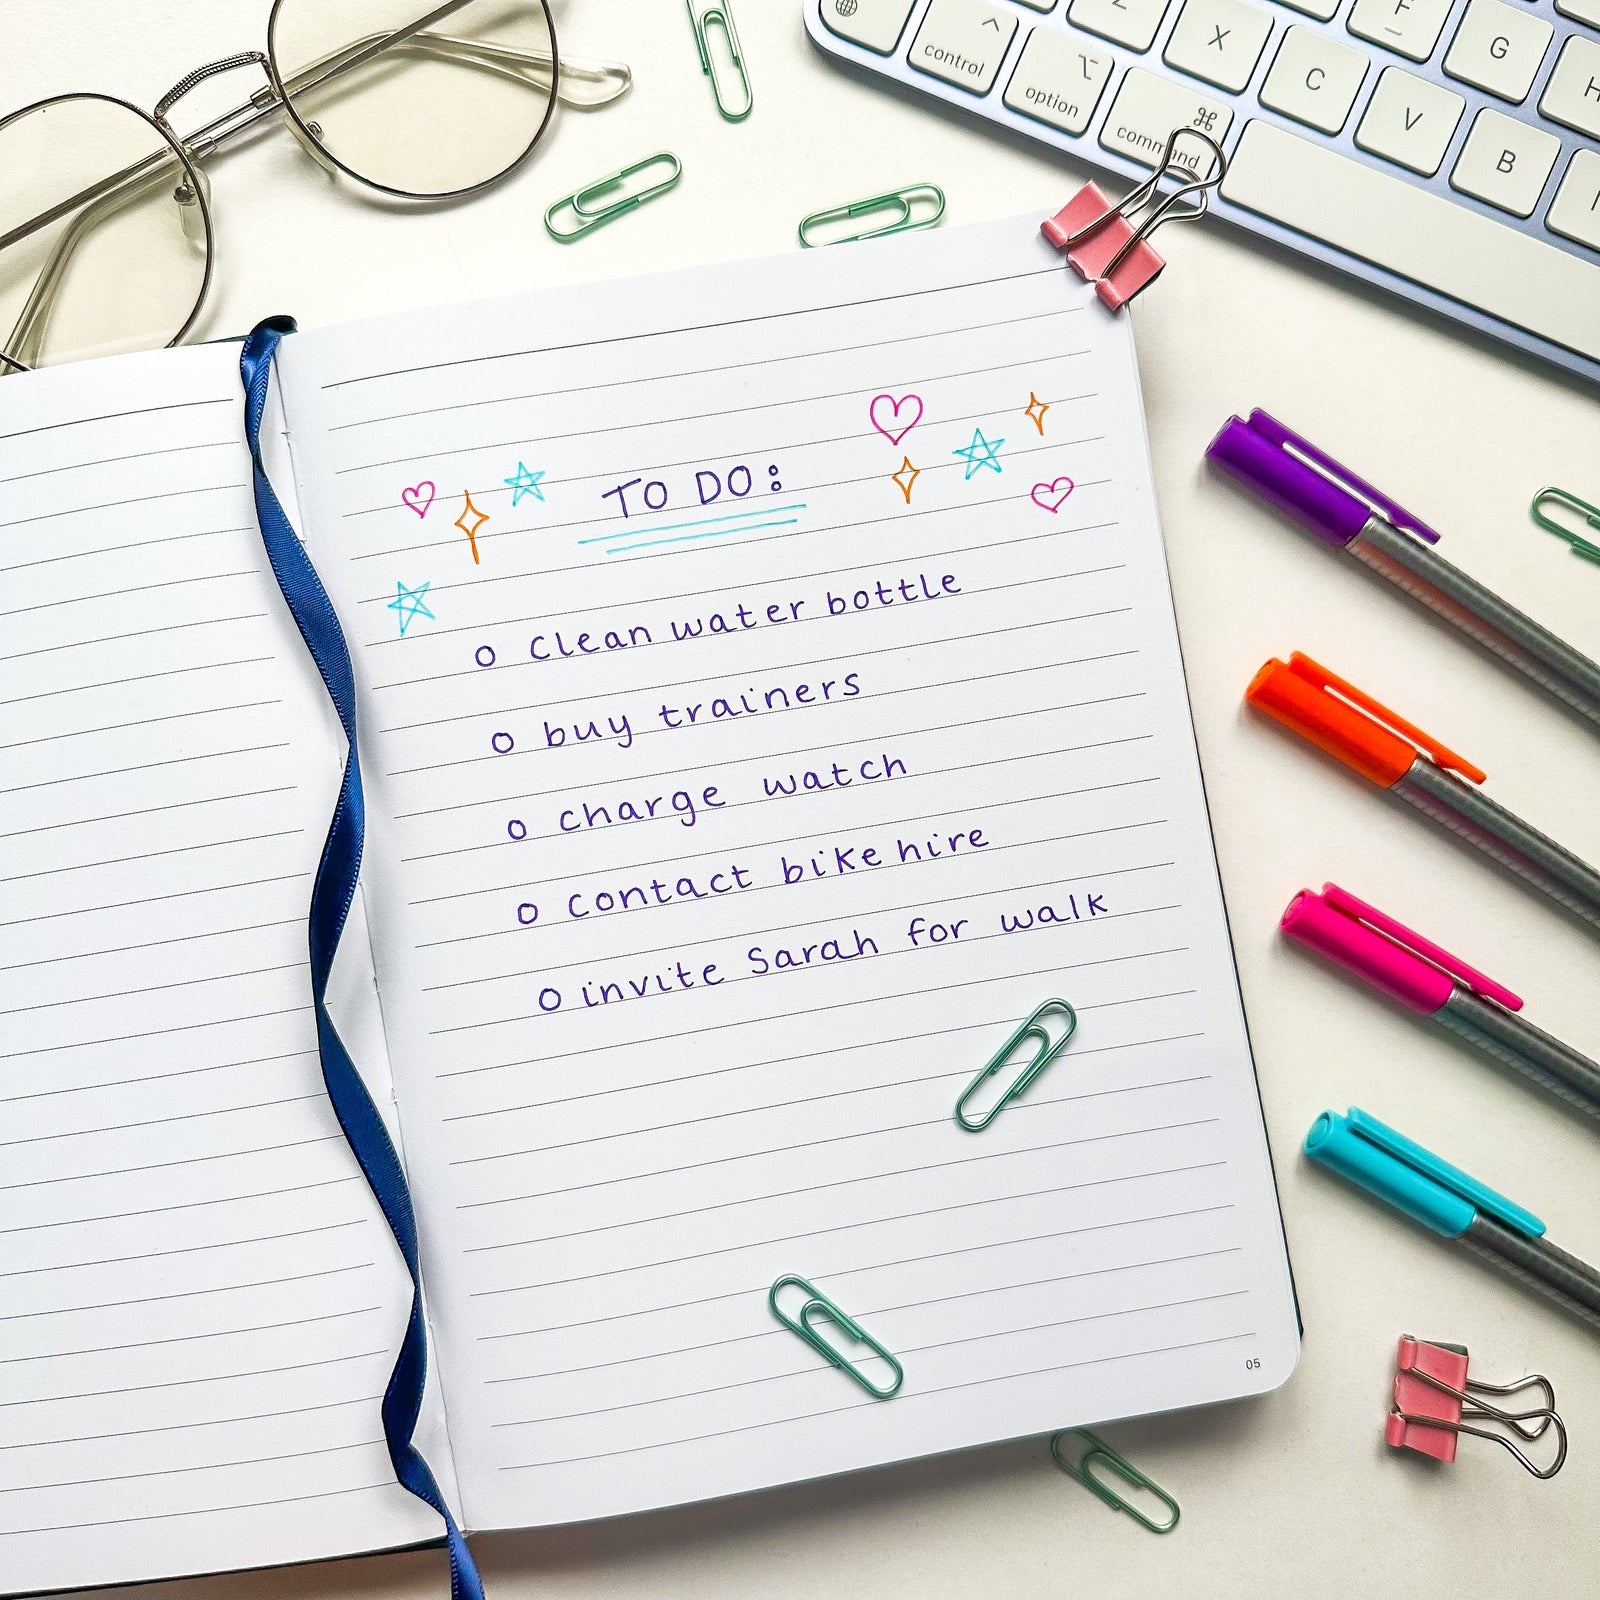 control
option
command
Z
X
C
V
B
F
G
H
TO DO:
o clean water bottle
o buy trainers
o charge watch
o contact bike hire
o invite Sarah for walk
05